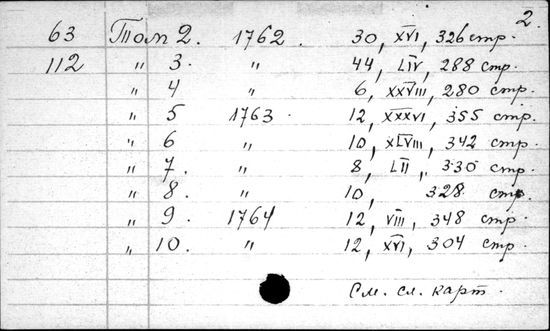 2.
63 Том 2. 1762. 30, XVI, 326 стр.
112 " 3. " 44, LIV, 288 стр.
" 4 " 6, XXVIII, 280 стр.
" 5 1763. 12, XXXVI, 355 стр.
" 6 " 10, XLVIII, 342 стр.
" 7. " 8, LII, 330 стр.
" 8. " 10, 328 стр.
" 9. 1764 12, VIII, 348 стр.
" 10. " 12, XVI, 304 стр.
См. сл. карт.